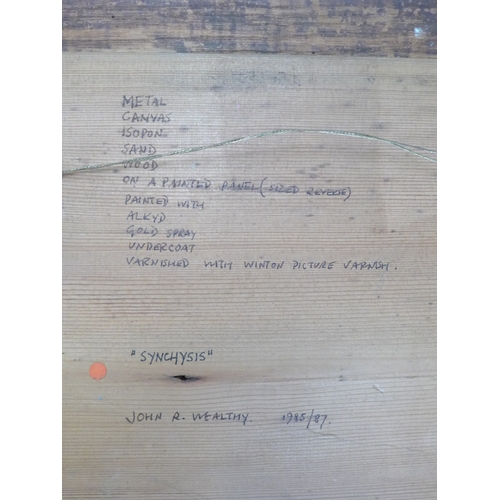 METAL
CANVAS
ISOPON
SAND
WOOD
ON A PAINTED PANEL (SIZED REVERSE)
PAINTED WITH
ALKYD
GOLD SPRAY
UNDERCOAT
VARNISHED WITH WINTON PICTURE VARNISH.
"SYNCHYSIS"
JOHN R. WEALTHY 1985/87.